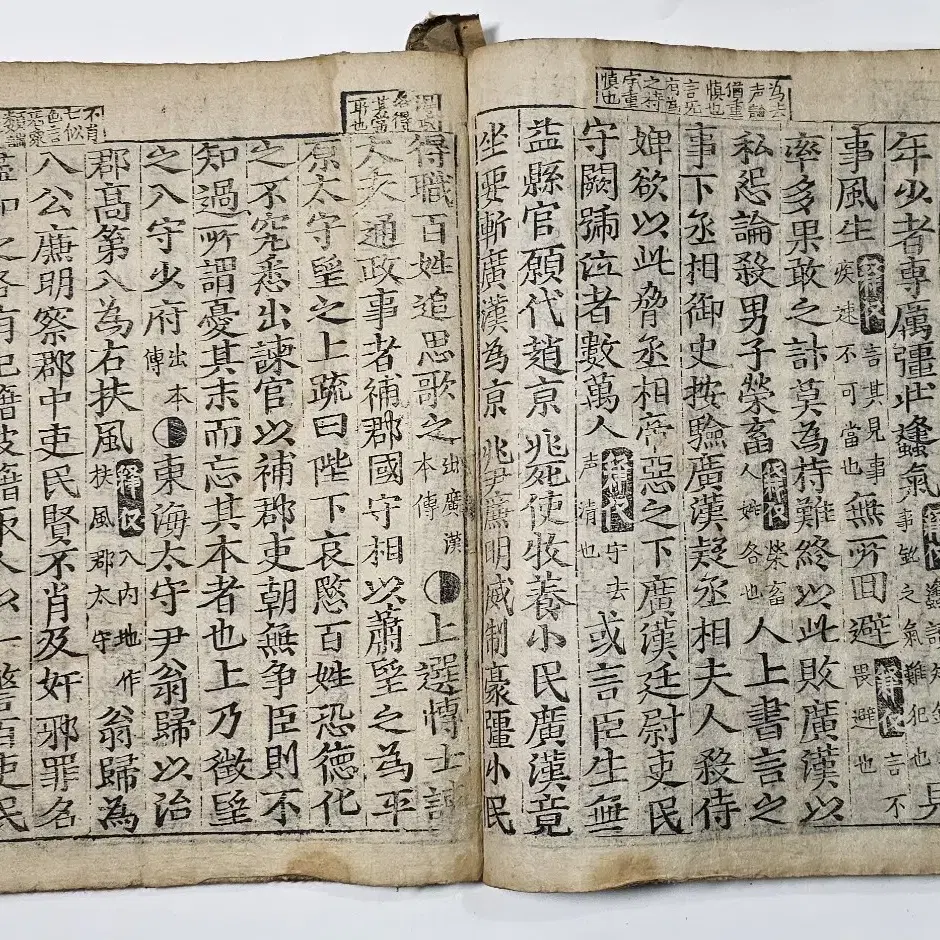 年少者專厲彊壯蠭氣
事風生釋義言其見事疾速不可當也無所回避釋義言不畏避也
率多果敢之計莫為持難終以此敗廣漢以
私怨論殺男子榮畜釋義榮畜人姓名也人上書言之
事下丞相御史按驗廣漢疑丞相夫人殺侍
婢欲以此脅丞相帝惡之下廣漢廷尉吏民
守闕號泣者數萬人釋義守去声清也或言臣生無
益縣官願代趙京兆死使牧養小民廣漢竟
坐要斬廣漢為京兆尹廉明威制豪彊小民
得職百姓追思歌之出廣漢本傳上選博士諫
大夫通政事者補郡國守相以蕭望之為平
原太守望之上疏曰陛下哀愍百姓恐德化
之不究悉出諫官以補郡吏朝無争臣則不
知過所謂憂其末而忘其本者也上乃徵望
之入守少府出本傳東海太守尹翁歸以治
郡高第入為右扶風釋義入内地作扶風郡太守翁歸為
人公廉明察郡中吏民賢不肖及奸邪罪名
盡知之各有記籍披籍取人以一警百吏民